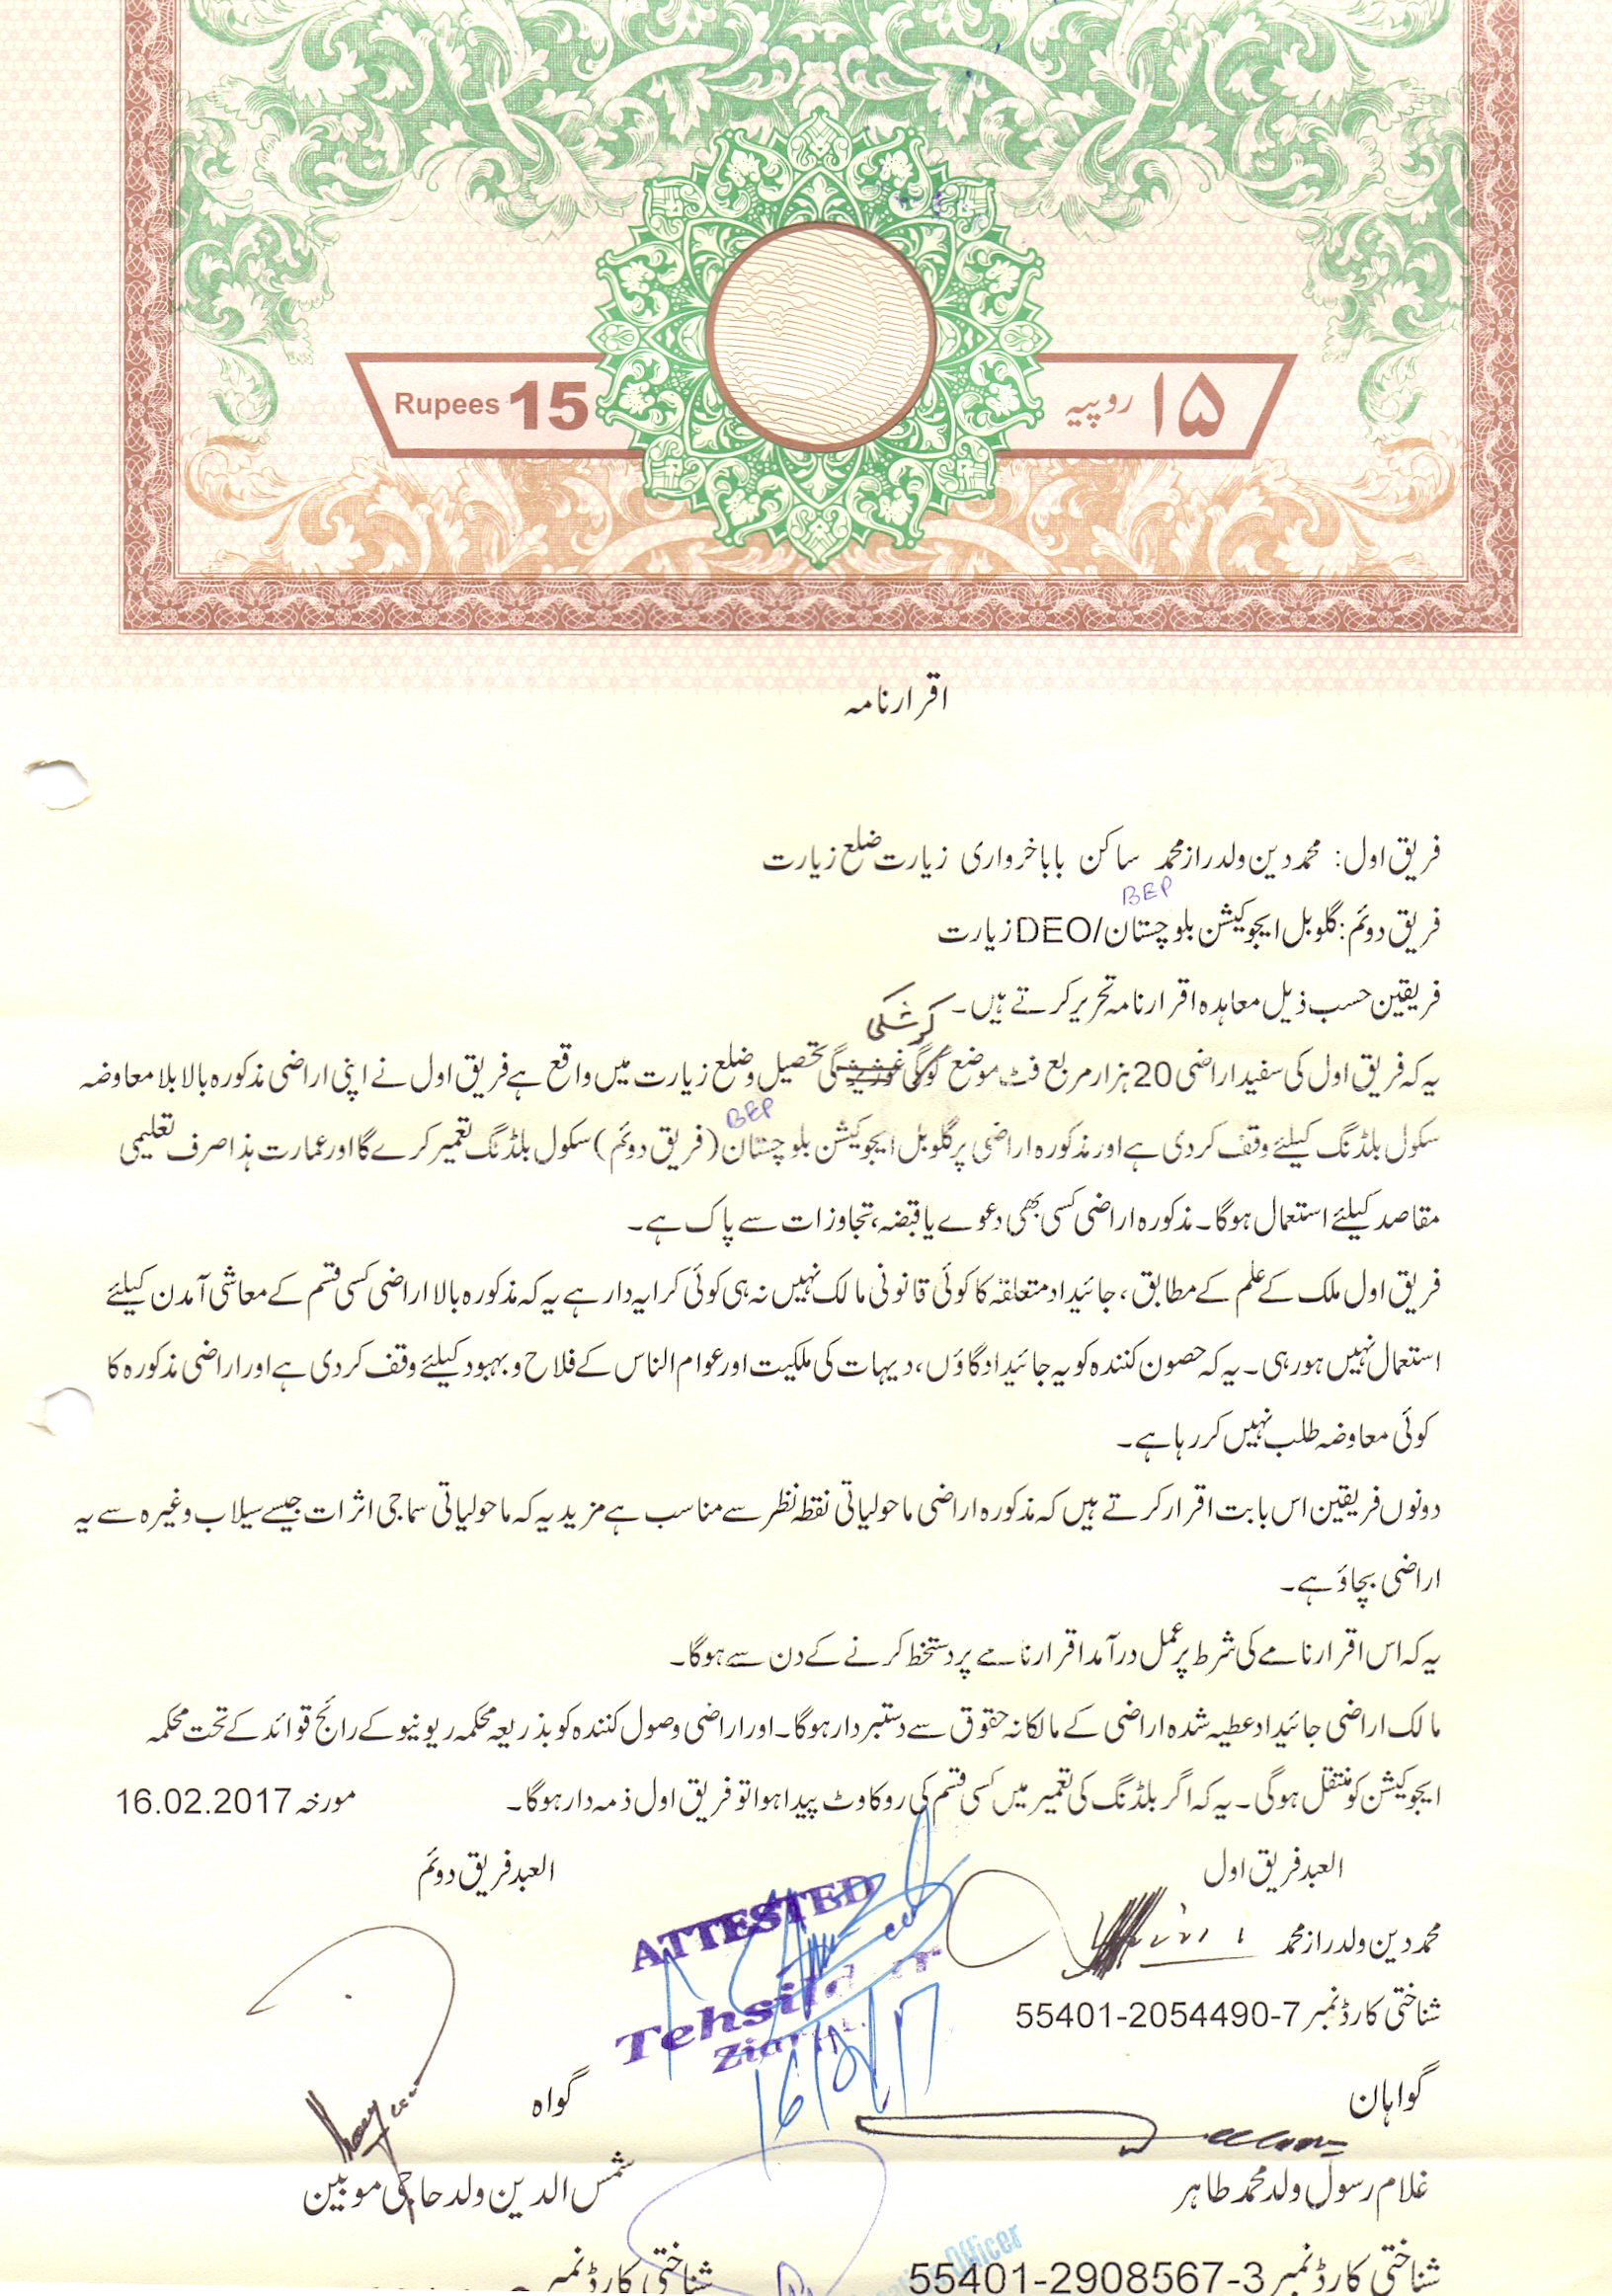 Rupees 15
۱۵ روپیہ
اقرارنامہ
فریق اول: محمد دین ولد راز محمد ساکن بابا خرواری زیارت ضلع زیارت
BEP
فریق دوئم: گلوبل ایجوکیشن بلوچستان/DEO زیارت
فریقین حسب ذیل معاہدہ اقرارنامہ تحریر کرتے ہیں۔
یہ کہ فریق اول کی سفید اراضی 20 ہزار مربع فٹ موضع تحصیل و ضلع زیارت میں واقع ہے فریق اول نے اپنی اراضی مذکورہ بالا بلا معاوضہ
BEP
سکول بلڈنگ کیلئے وقف کردی ہے اور مذکورہ اراضی پر گلوبل ایجوکیشن بلوچستان (فریق دوئم) سکول بلڈنگ تعمیر کرے گا اور عمارت ہذا صرف تعلیمی
مقاصد کیلئے استعمال ہوگا۔ مذکورہ اراضی کسی بھی دعوے یا قبضہ، تجاوزات سے پاک ہے۔
فریق اول ملک کے علم کے مطابق، جائیداد متعلقہ کا کوئی قانونی مالک نہیں نہ ہی کوئی کرایہ دار ہے یہ کہ مذکورہ بالا اراضی کسی قسم کے معاشی آمدن کیلئے
استعمال نہیں ہو رہی۔ یہ کہ حصون کنندہ کو یہ جائیداد گاؤں، دیہات کی ملکیت اور عوام الناس کے فلاح و بہبود کیلئے وقف کردی ہے اور اراضی مذکورہ کا
کوئی معاوضہ طلب نہیں کر رہا ہے۔
دونوں فریقین اس بابت اقرار کرتے ہیں کہ مذکورہ اراضی ماحولیاتی نقطہ نظر سے مناسب ہے مزید یہ کہ ماحولیاتی سماجی اثرات جیسے سیلاب وغیرہ سے یہ
اراضی بچاؤ ہے۔
یہ کہ اس اقرارنامے کی شرط پر عمل درآمد اقرارنامے پر دستخط کرنے کے دن سے ہوگا۔
مالک اراضی جائیداد عطیہ شدہ اراضی کے مالکانہ حقوق سے دستبردار ہوگا۔ اور اراضی وصول کنندہ کو بذریعہ محکمہ ریونیو کے رائج قوائد کے تحت محکمہ
ایجوکیشن کو منتقل ہوگی۔ یہ کہ اگر بلڈنگ کی تعمیر میں کسی قسم کی روکاوٹ پیدا ہوا تو فریق اول ذمہ دار ہوگا۔ مورخہ 16.02.2017
العبد فریق اول
العبد فریق دوئم
ATTESTED
Tehsildar
Ziarat
16/02/17
محمد دین ولد راز محمد
شناختی کارڈ نمبر 55401-2054490-7
گواہان
گواہ
غلام رسول ولد محمد طاہر
شمس الدین ولد حاجی موبین
شناختی کارڈ نمبر 55401-2908567-3
شناختی کارڈ نمبر
Officer